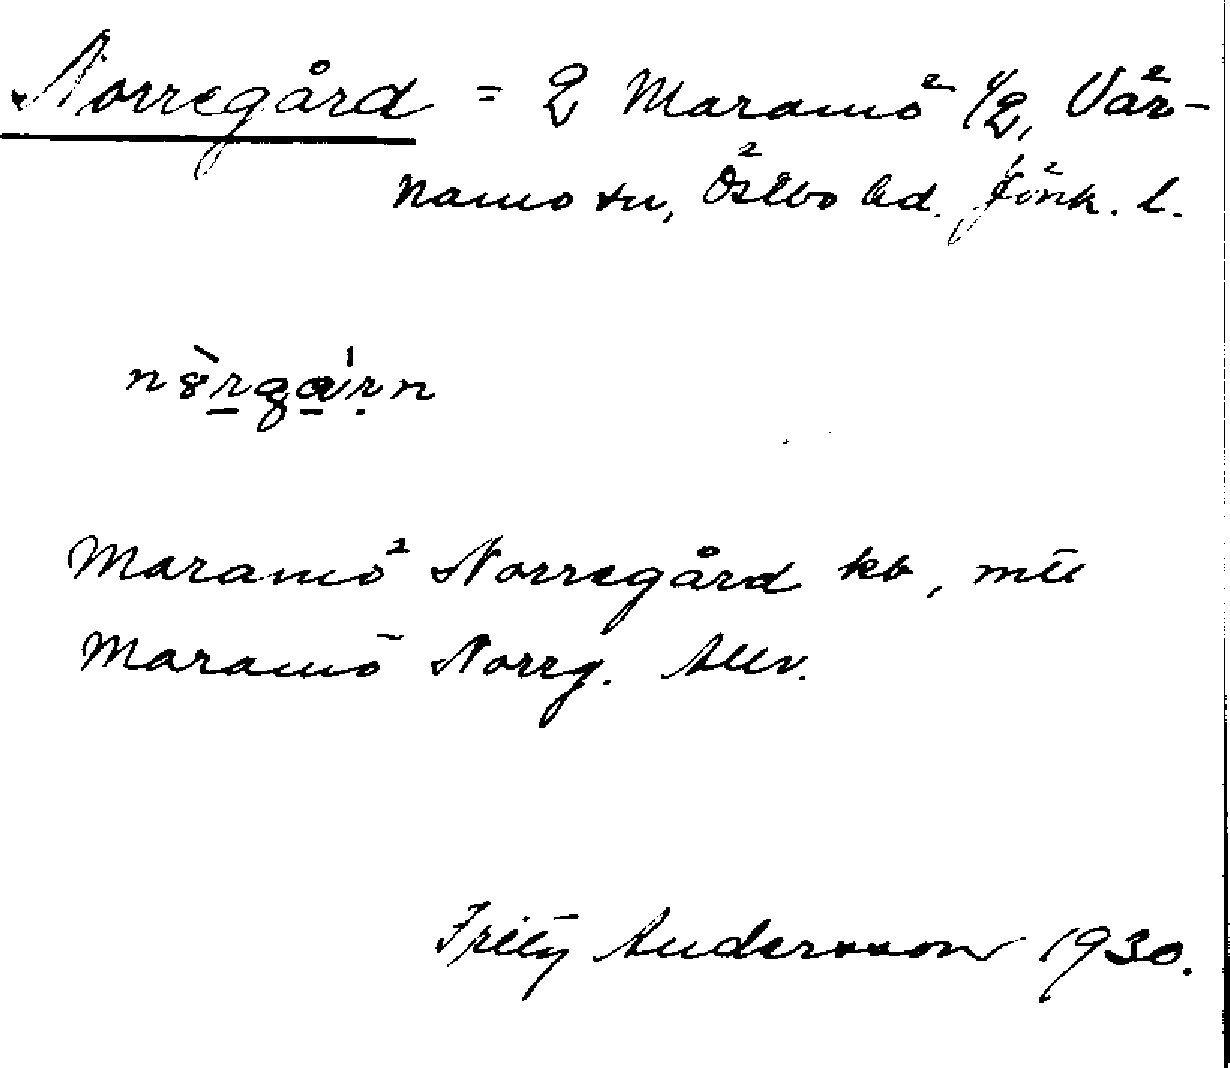 Norregård = 2 Maramö 1/2, Vär-
namo sn, Östbo hd. Jönk. l.
Maramö Norregård kb,
Maramö Norrg.
Fritz Andersson 1930.